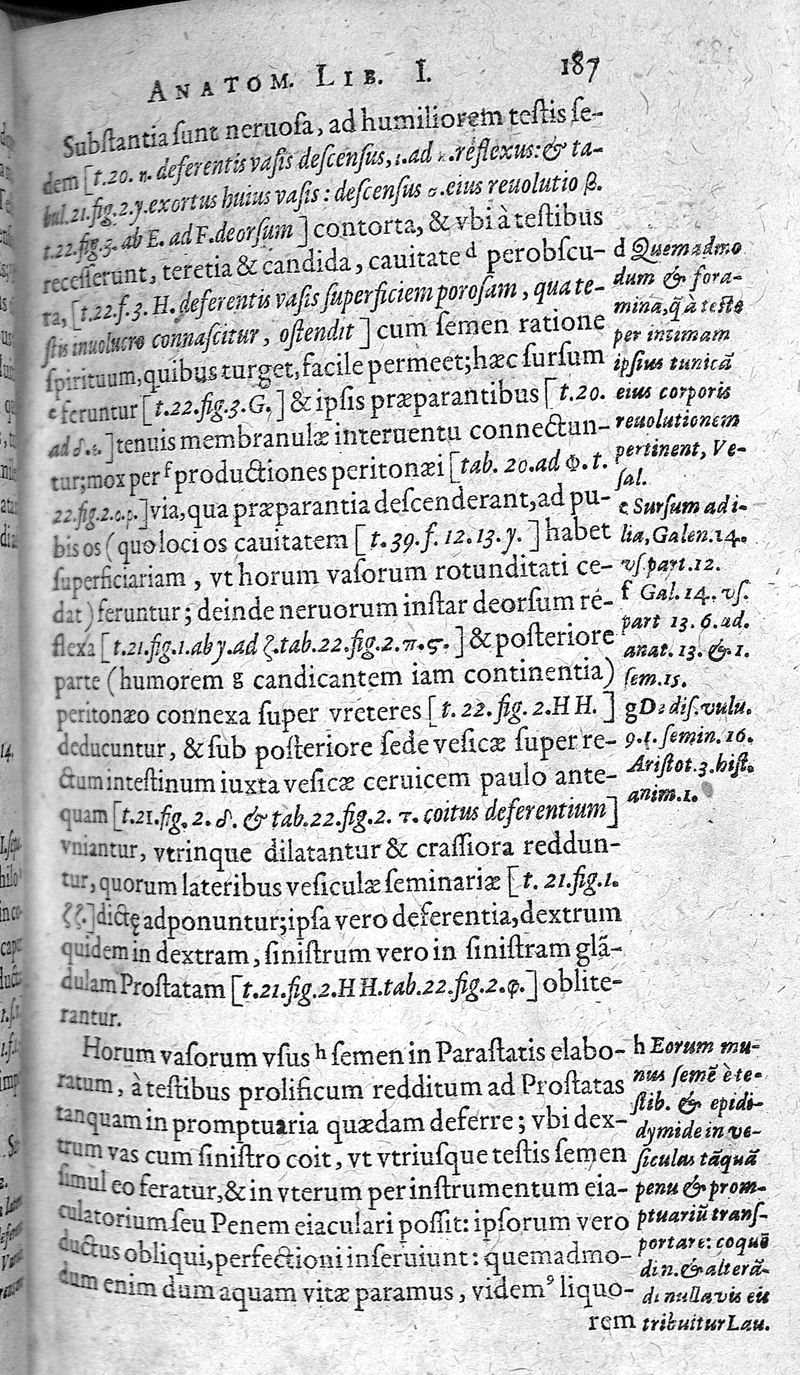 ANATOM. LIB. I. 187
Substantia sunt neruosa, ad humiliorem testis se-
dem [t.20. n. deferentis vasis descensus, ι. ad κ. reflexus: & ta-
bul.21.fig.2.γ.exortus huius vasis: descensus α. eius reuolutio β.
t.22.fig.3. ab E. ad F. deorsum] contorta, & vbi à testibus
recesserunt, teretia & candida, cauitate d perobscu-
ra, [t.22.f.3. H. deferentis vasis superficiem porosam, qua te-
stis inuolucro connascitur, ostendit] cum semen ratione
spirituum, quibus turget, facile permeet; hæc sursum
e feruntur [t.22.fig.3.G.] & ipsis præparantibus [t.20.
ad δ.ε.] tenuis membranulæ interuentu connectun-
tur; mox per f productiones peritonæi [tab. 20. ad Φ. t.
22.fig.2.ο.ρ.] via, qua præparantia descenderant, ad pu-
bis os (quo loci os cauitatem [t.39.f.12.13.γ.] habet
superficiariam, vt horum vasorum rotunditati ce-
dat) feruntur; deinde neruorum instar deorsum re-
flexa [t.21.fig.1.ab γ. ad ζ. tab.22.fig.2.π.ς.] & posteriore
parte (humorem g candicantem iam continentia)
peritonæo connexa super vreteres [t. 22. fig. 2. HH.]
deducuntur, & sub posteriore sede vesicæ super re-
ctum intestinum iuxta vesicæ ceruicem paulo ante-
quam [t.21.fig. 2. δ. & tab.22.fig.2. τ. coitus deferentium]
vniantur, vtrinque dilatantur & crassiora reddun-
tur, quorum lateribus vesiculæ seminariæ [t. 21.fig.1.
ζζ.] dictę adponuntur; ipsa vero deferentia, dextrum
quidem in dextram, sinistrum vero in sinistram glã-
dulam Prostatam [t.21.fig.2.HH.tab.22.fig.2.φ.] oblite-
rantur.
Horum vasorum vsus h semen in Parastatis elabo-
ratum, à testibus prolificum redditum ad Prostatas
tanquam in promptuaria quædam deferre; vbi dex-
trum vas cum sinistro coit, vt vtriusque testis semen
simul eo feratur, & in vterum per instrumentum eia-
culatorium seu Penem eiaculari possit: ipsorum vero
ductus obliqui, perfectioni inseruiunt: quemadmo-
dum enim dum aquam vitæ paramus, videmꝰ liquo-
rem
d Quemadmo
dum & fora-
mina, q̃ à teste
per intimam
ipsius tunicã
eius corporis
reuolutionem
pertinent, Ve-
sal.
e Sursum ad i-
lia, Galen. 14.
vs. part. 12.
f Gal. 14. vs.
part 13. 6. ad.
anat. 13. & 1.
sem. 15.
g De dis. vulu.
9. 1. semin. 16.
Aristot. 3. hist.
anim. 1.
h Eorum mu-
nus semẽ è te-
stib. & epidi-
dymide in ve-
siculas tãquã
penu & prom-
ptuariũ trans-
portare: coquẽ
di n. & alterã-
di nulla vis eis
tribuitur Lau.